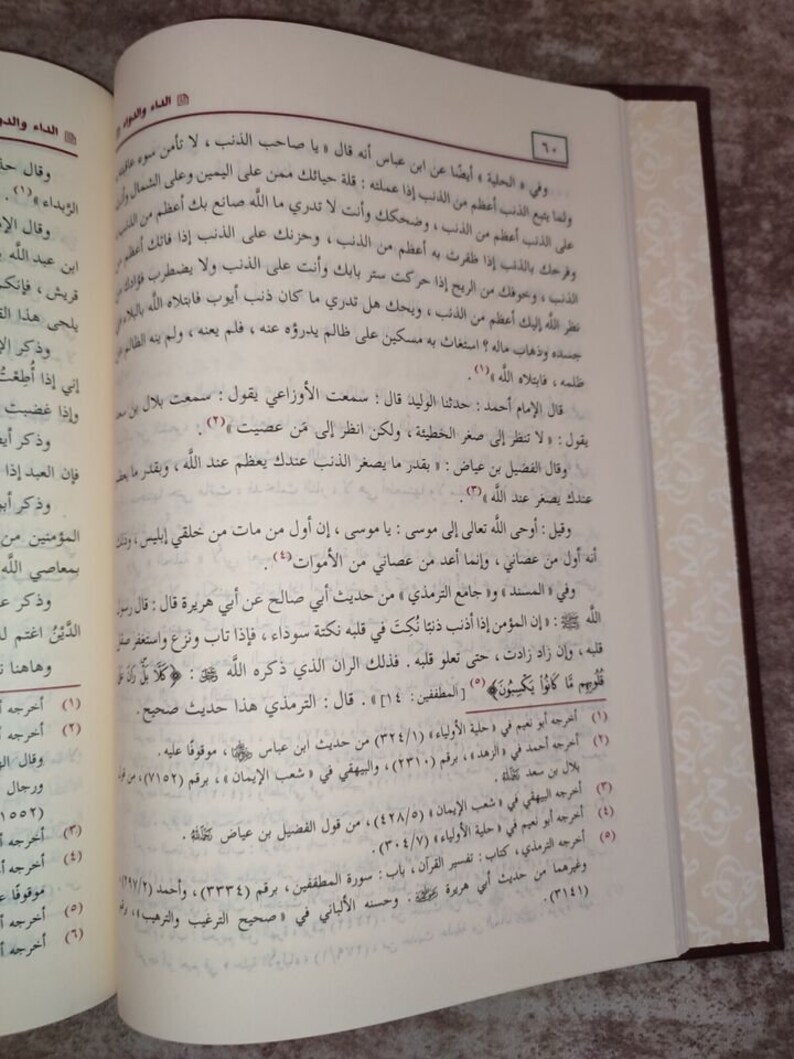 الداء والدواء
٦٠
وفي « الحلية » أيضًا عن ابن عباس أنه قال « يا صاحب الذنب ، لا تأمن سوء عاقبته
ولما يتبع الذنب أعظم من الذنب إذا عملته : قلة حيائك ممن على اليمين وعلى الشمال وأنت
على الذنب أعظم من الذنب ، وضحكك وأنت لا تدري ما اللَّه صانع بك أعظم من الذنب ،
وفرحك بالذنب إذا ظفرت به أعظم من الذنب ، وحزنك على الذنب إذا فاتك أعظم من
الذنب ، وخوفك من الريح إذا حركت ستر بابك وأنت على الذنب ولا يضطرب فؤادك من
نظر اللَّه إليك أعظم من الذنب ، ويحك هل تدري ما كان ذنب أيوب فابتلاه اللَّه بالبلاء في
جسده وذهاب ماله ؟ استغاث به مسكين على ظالم يدرؤه عنه ، فلم يعنه ، ولم ينه الظالم عن
ظلمه ، فابتلاه اللَّه »(١) .
قال الإمام أحمد : حدثنا الوليد قال : سمعت الأوزاعي يقول : سمعت بلال بن سعد
يقول : « لا تنظر إلى صغر الخطيئة ، ولكن انظر إلى مَن عصيت »(٢) .
وقال الفضيل بن عياض : « بقدر ما يصغر الذنب عندك يعظم عند اللَّه ، وبقدر ما يعظم
عندك يصغر عند اللَّه »(٣) .
وقيل : أوحى اللَّه تعالى إلى موسى : يا موسى ، إن أول من مات من خلقي إبليس ، وذلك
أنه أول من عصاني ، وإنما أعد من عصاني من الأموات(٤) .
وفي « المسند » و« جامع الترمذي » من حديث أبي صالح عن أبي هريرة قال : قال رسول
اللَّه ﷺ : « إن المؤمن إذا أذنب ذنبًا نُكِتَ في قلبه نكتة سوداء ، فإذا تاب ونزع واستغفر صقل
قلبه ، وإن زاد زادت ، حتى تعلو قلبه . فذلك الران الذي ذكره اللَّه ﷻ : ﴿كَلَّا بَلْ رَانَ عَلَى
قُلُوبِهِم مَّا كَانُوا يَكْسِبُونَ﴾(٥) [المطففين: ١٤] » . قال : الترمذي هذا حديث صحيح .
(١) أخرجه أبو نعيم في « حلية الأولياء » (٣٢٤/١) من حديث ابن عباس ، موقوفًا عليه .
(٢) أخرجه أحمد في « الزهد » ، برقم (٢٣١٠) ، والبيهقي في « شعب الإيمان » ، برقم (٧١٥٢) ، من قول
بلال بن سعد .
(٣) أخرجه البيهقي في « شعب الإيمان » (٤٢٨/٥) ، من قول الفضيل بن عياض .
(٤) أخرجه أبو نعيم في « حلية الأولياء » (٣٠٤/٧) .
(٥) أخرجه الترمذي ، كتاب : تفسير القرآن ، باب : سورة المطففين ، برقم (٣٣٣٤) ، وأحمد (٢٩٧/٢)
وغيرهما من حديث أبي هريرة . وحسنه الألباني في « صحيح الترغيب والترهيب » ، رقم
(٣١٤١) .
الداء والدواء
وقال
الرُّبداء »(١) .
وقال
ابن عبد اللَّه
قريش ، فإنكم
يلحى هذا
وذكر
إني إذا أُطِعْتُ
وإذا غضبت
وذكر
فإن العبد إذا
وذكر
المؤمنين من
بمعاصي اللَّه
وذكر
الدَّيْنُ اغتم
وهاهنا
(١) أخرجه
(٢) أخرجه
وقال
ورجال
١٥٥٢)
(٣) أخرجه
(٤) أخرجه
موقوفًا
(٥) أخرجه
(٦) أخرجه